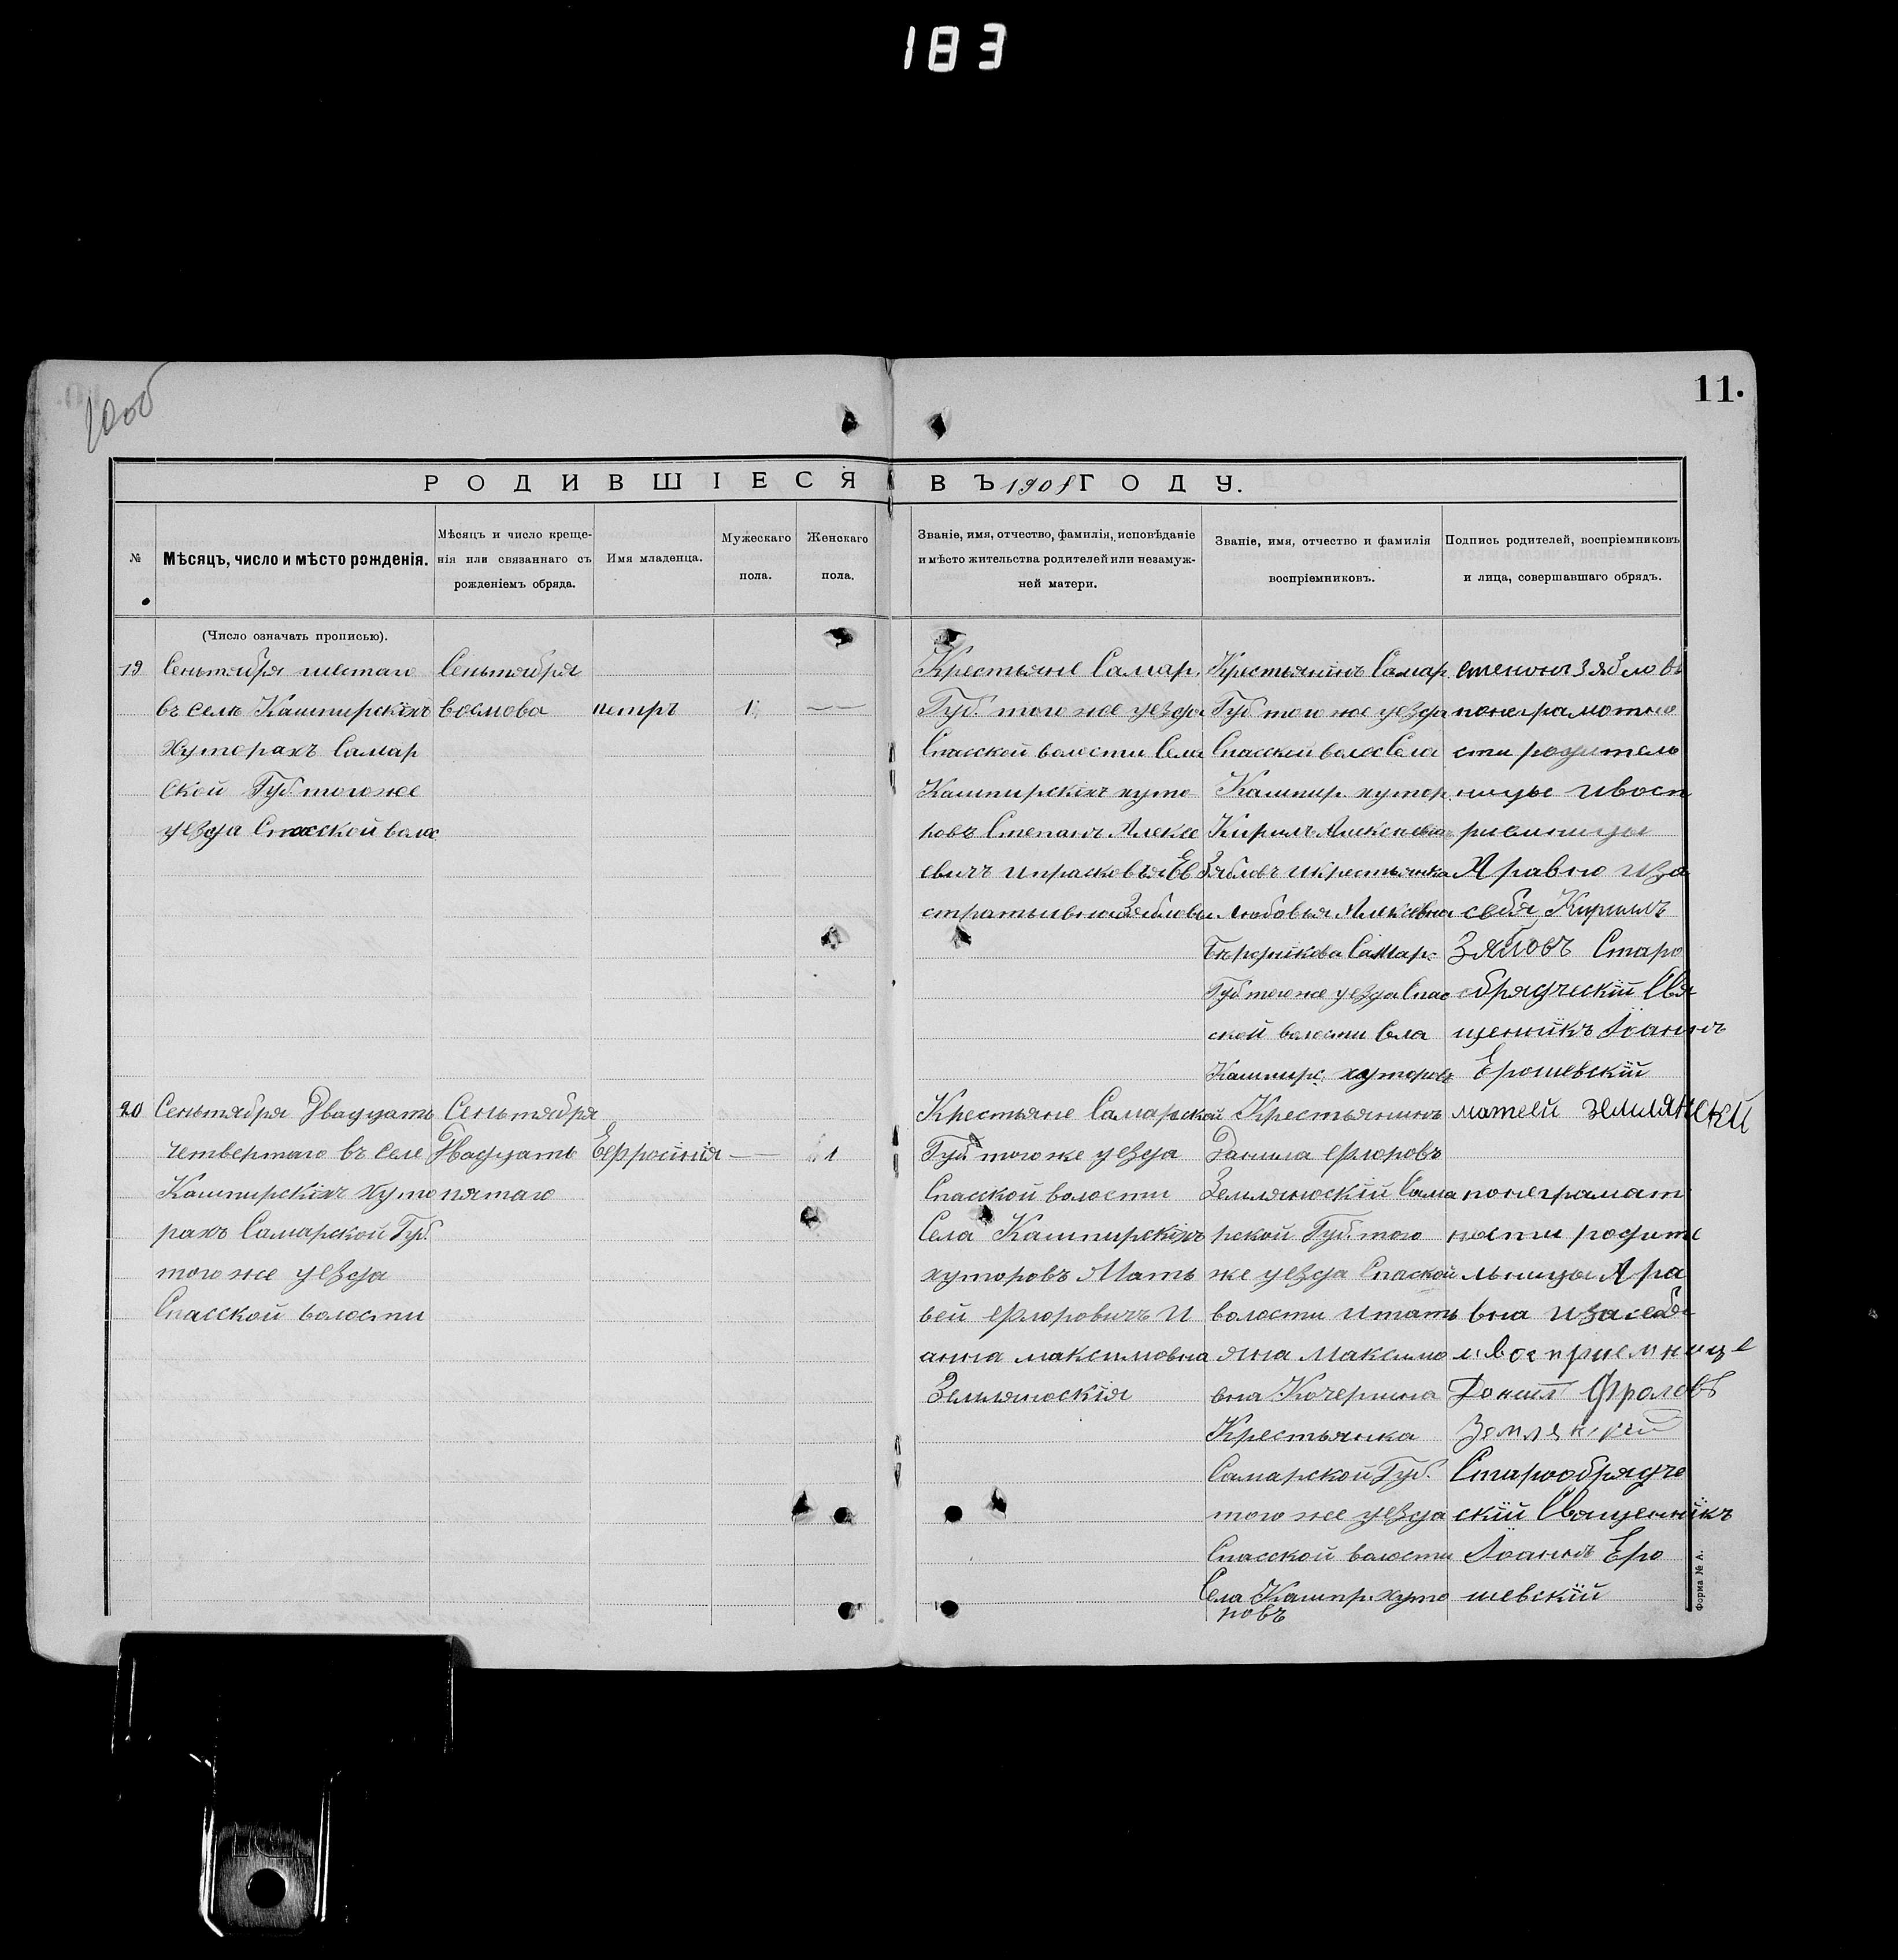 183
11.
РОДИВШІЕСЯ ВЪ 1908 ГОДУ.
№
Мѣсяцъ, число и мѣсто рожденія.
Мѣсяцъ и число креще-
нія или связаннаго съ
рожденіемъ обряда.
Имя младенца.
Мужескаго
пола.
Женскаго
пола.
Званіе, имя, отчество, фамилія, исповѣданіе
и мѣсто жительства родителей или незамуж-
ней матери.
Званіе, имя, отчество и фамилія
воспріемниковъ.
Подпись родителей, воспріемниковъ
и лица, совершавшаго обрядъ.
(Число означать прописью).
19
Сеньтября шестаго
въ селѣ Кашпирскіхъ
Хуторахъ Самар
ской Губ тогоже
уезда Спасской волос
Сеньтября
восмова
петръ
1
Крестьяне Самар.
Губ. того же уезда
Спасской волости Села
Кашпирскіхъ хуто
ровъ Степанъ Алексе
евичъ ипрасковья Ев
стратьивна Зябловы
Крестьянинъ Самар
Губ того же уезда
Спасской волос Села
Кашпир. хутор.
Кирилъ Алексеевичъ
Зябловъ икрестьянка
Любовья Алексевна
Самар.
Губ тогоже уезда Спас
ской волости Села
Кашпирс. хуторовъ
степанъ Зяблов
понеграмотно
сти родитель
ницы ивосп
риемницы
А равно иза
себя Кирилъ
Зябловъ Старо
обрядческій Свя
щенникъ Іоаннъ
Ерошевскій
20
Сеньтября Двадцать
четвертаго въ селе
Кашпирскіхъ Хуто
рахъ Самарской Губ.
того же уезда
Спасской волости
Сеньтября
Двадцать
пятаго
Ефросинія
1
Крестьяне Самарской
Губ того же уезда
Спасской волости
Села Кашпирскіхъ
хуторовъ Мать
вей Флоровичъ И
анна максимовна
Земляноскія
Крестьянинъ
Данила Флоровъ
Землянюскій Сама
рской Губ. того
же уезда Спаской
волости
Максимо
вна Кочергина
Крестьянка
Самарской Губ.
того же уезда
Спасской волости
Села Кашпр. хуто
ровъ
матвей землянскй
понеграмат
ности родите
льницы А ра
вна иза себя
и восприемнице
Донил Фроловъ
Старообрядче
скій Священникъ
Іоаннъ Еро
шевскій
Форма № А.